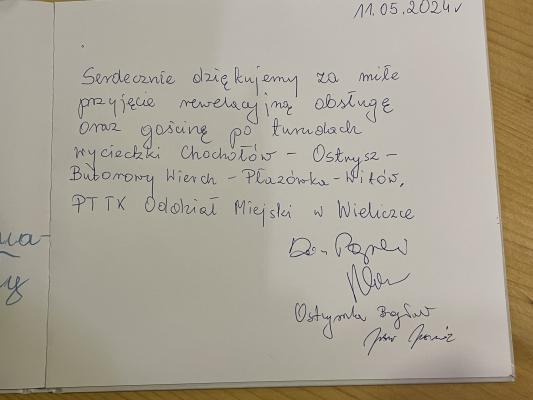 11.05.2024r
Serdecznie dziękujemy za miłe
przyjęcie rewelacyjną obsługę
oraz gościnę po trudach
wycieczki Chochołów - Ostrysz -
Butorowy Wierch - Płazówka - Witów.
PTTK Oddział Miejski w Wieliczce